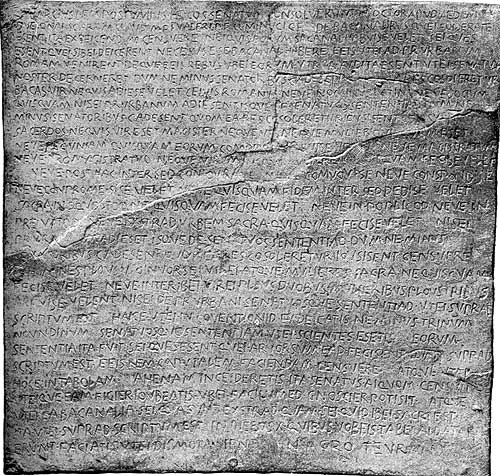 MARCIVS L F S POSTVMIVS L F COS SENATVM CONSOLVERVNT N OCTOB APVD AEDEM
DVELONAI SC ARF M CLAVDI M F L VALERI P F Q MINVCI C F DE BACANALIBVS QVEI FOIDERATEI
ESENT ITA EXDEICENDVM CENSVERE NEIQVIS EORVM BACANAL HABVISE VELET SEI QVES
ESENT QVEI SIBEI DEICERENT NECESVS ESE BACANAL HABERE EEIS VTEI AD PR VRBANVM
ROMAM VENIRENT DEQVE EEIS REBVS VBEI EORVM VERBA AVDITA ESENT VTEI SENATVS
NOSTER DECERNERET DVM NE MINVS SENATORBVS C ADESENT A RES COSOLORETVR
BACAS VIR NEQVIS ADIESE VELET CEIVIS ROMANVS NEVE NOMINVS LATINI NEVE SOCIVM
QVISQVAM NISEI PR VRBANVM ADIESENT ISQVE DE SENATVOS SENTENTIAD DVM NE
MINVS SENATORIBVS C ADESENT QVOM EA RES COSOLERETVR IOVSISENT CENSVERE
SACERDOS NEQVIS VIR ESET MAGISTER NEQVE VIR NEQVE MVLIER QVISQVAM ESET
NEVE PECVNIAM QVISQVAM EORVM COMOINEM HABVISE VELET NEVE MAGISTRATVM
NEVE PRO MAGISTRATVD NEQVE VIRVM NEQVE MVLIEREM QVIQVAM FECISE VELET
NEVE POST HAC INTER SED CONIOVRASE NEVE COMVOVISE NEVE CONSPONDISE
NEVE CONPROMESISE VELET NEVE QVISQVAM FIDEM INTER SED DEDISE VELET
SACRA IN OQVOLTOD NE QVISQVAM FECISE VELET NEVE IN POPLICOD NEVE IN
PREIVATOD NEVE EXSTRAD VRBEM SACRA QVISQVAM FECISE VELET NISEI
PR VRBANVM ADIESET ISQVE DE SENATVOS SENTENTIAD DVM NE MINVS
SENATORIBVS C ADESENT QVOM EA RES COSOLERETVR IOVSISENT CENSVERE
HOMINES PLOVS V OINVORSEI VIREI ATQVE MVLIERES SACRA NE QVISQVAM
FECISE VELET NEVE INTER IBEI VIREI PLOVS DVOBVS MVLIERIBVS PLOVS TRIBVS
ARFVISE VELENT NISEI DE PR VRBANI SENATVOSQVE SENTENTIAD VTEI SVPRAD
SCRIPTVM EST HAICE VTEI IN COVENTIONID EXDEICATIS NE MINVS TRINVM
NOVNDINVM SENATVOSQVE SENTENTIAM VTEI SCIENTES ESETIS EORVM
SENTENTIA ITA FVIT SEI QVES ESENT QVEI ARVORSVM EAD FECISENT QVAM SVPRAD
SCRIPTVM EST EEIS REM CAPVTALEM FACIENDAM CENSVERE ATQVE VTEI
HOCE IN TABOLAM AHENAM INCEIDERETIS ITA SENATVS AIQVOM CENSVIT
VTEIQVE EAM FIGIER IOVBEATIS VBEI FACILVMED GNOSCIER POTISIT ATQVE
VTEI EA BACANALIA SEI QVA SVNT EXSTRAD QVAM SEI QVID IBEI SACRI EST
ITA VTEI SVPRAD SCRIPTVM EST IN DIEBVS X QVIBVS VOBEIS TABELAI DATAI
ERVNT FACIATIS VTEI DISMOTA SIENT IN AGRO TEVRANO